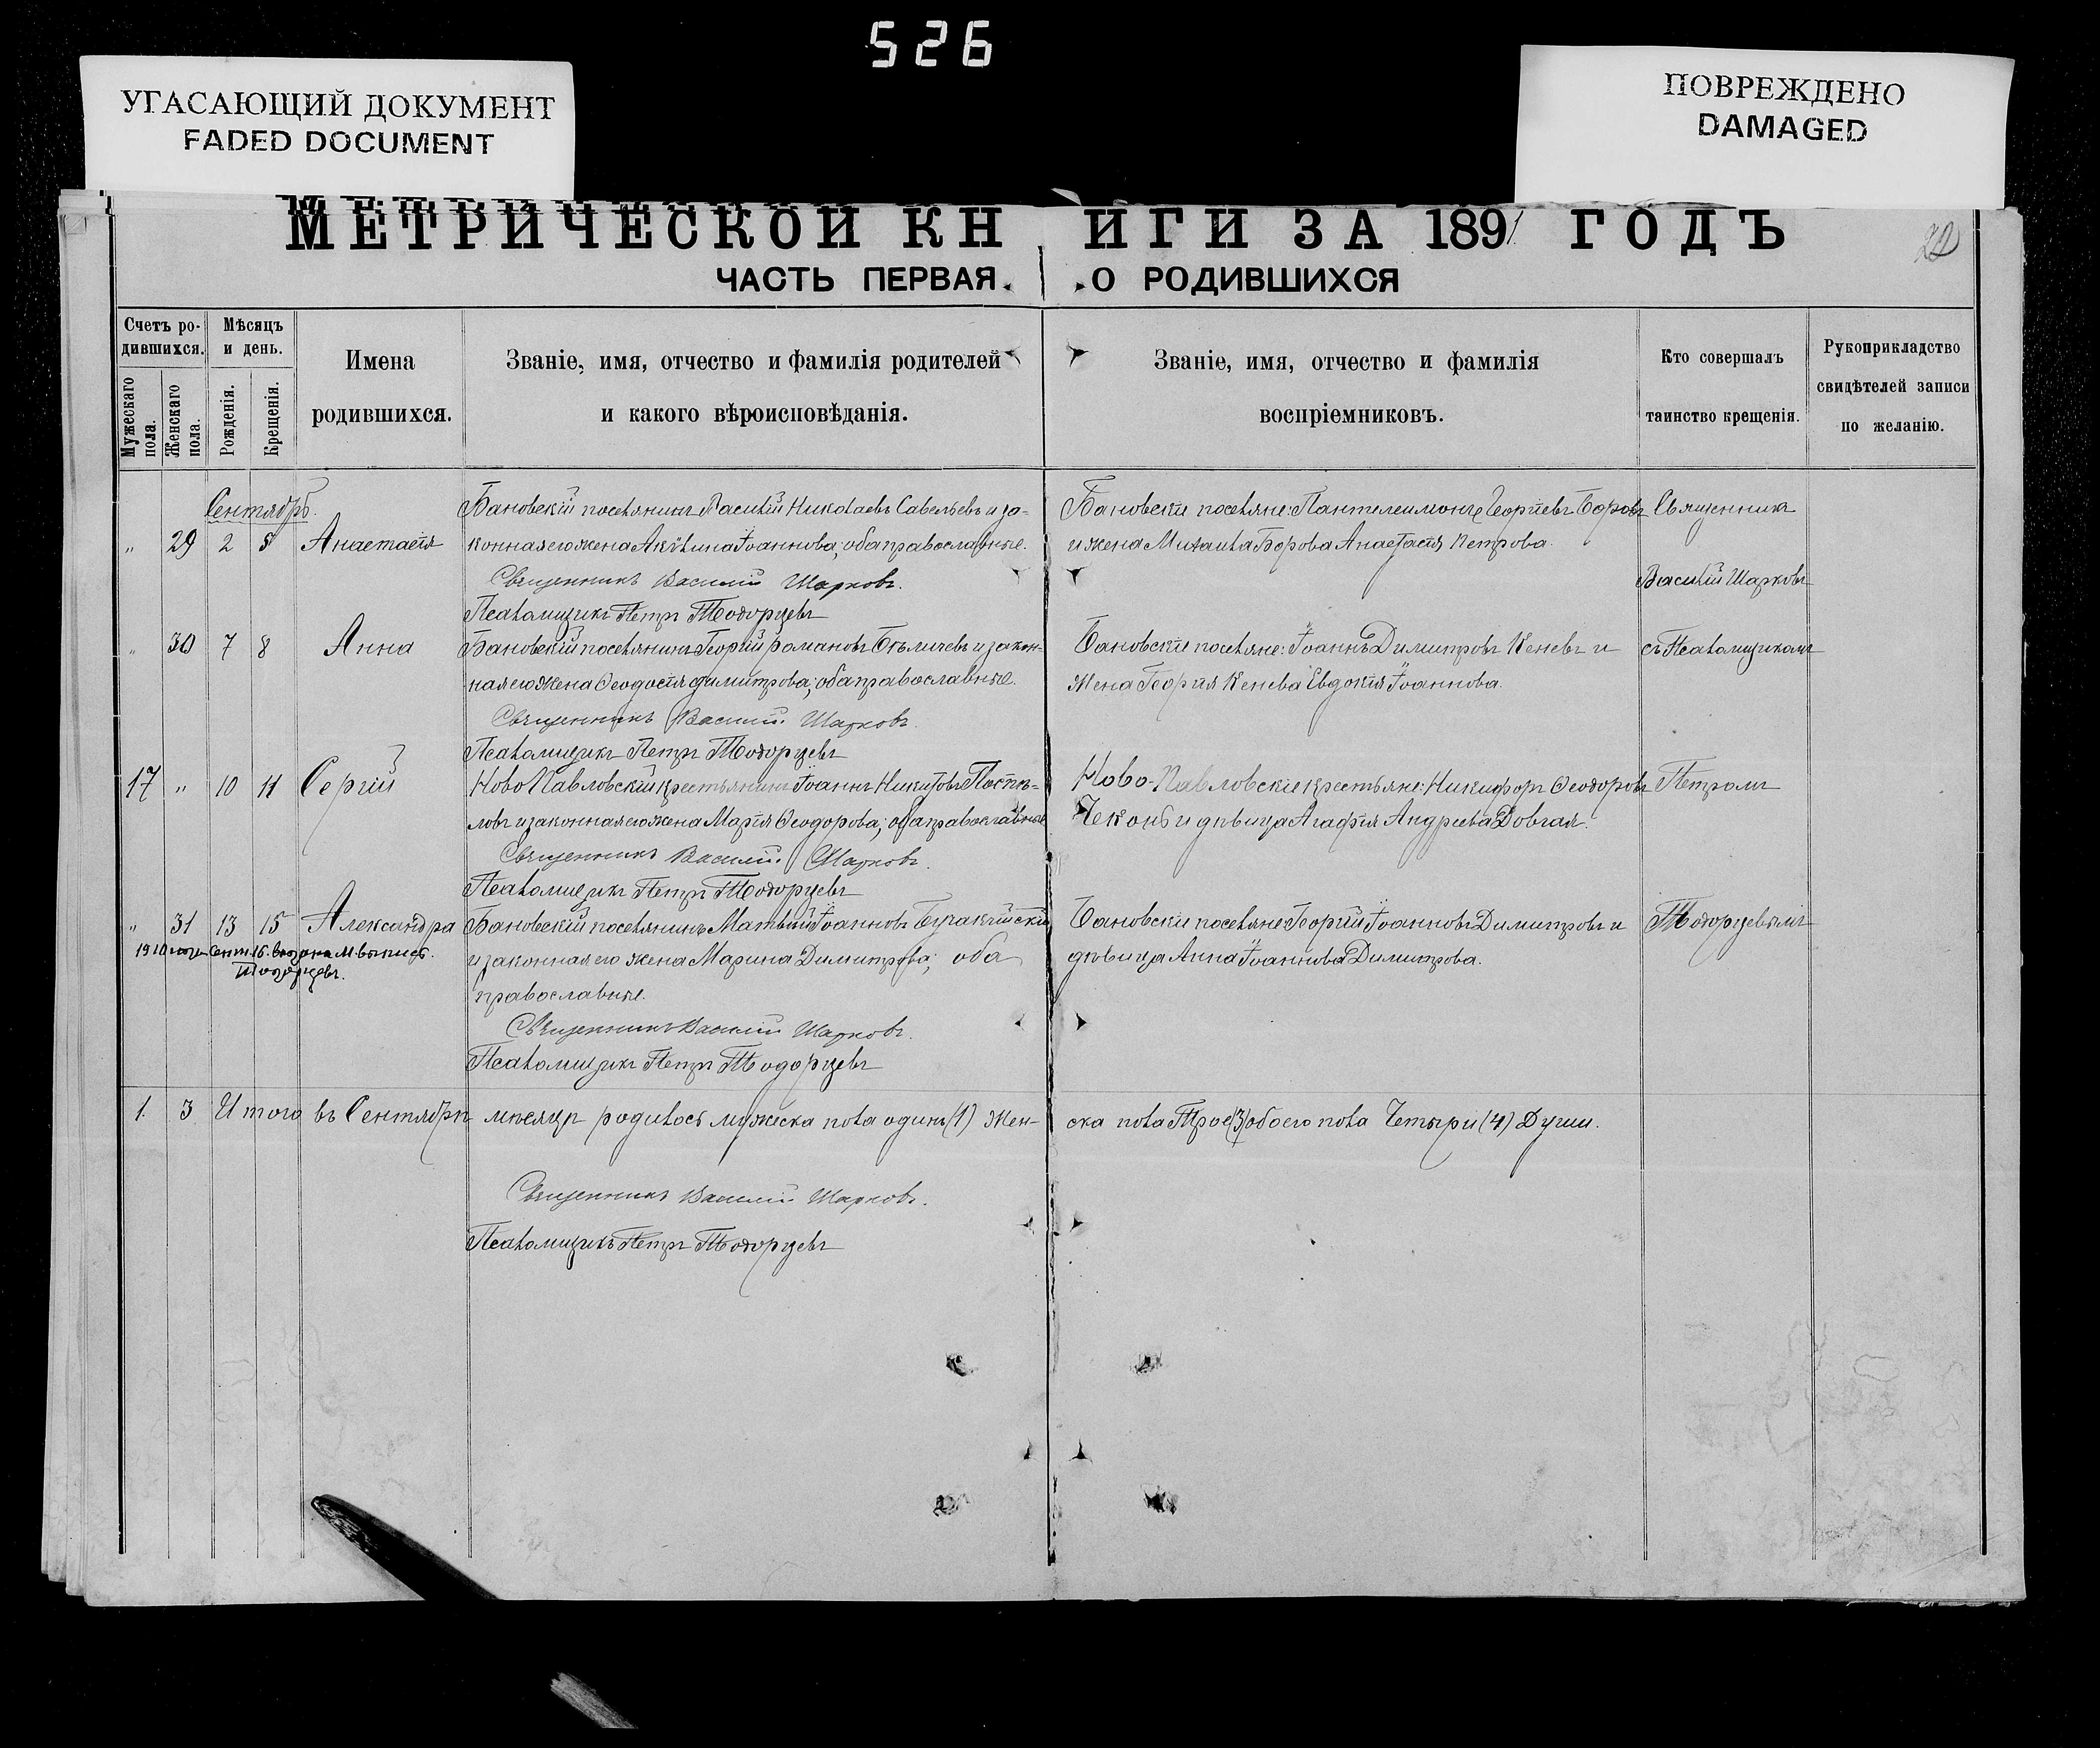 526
УГАСАЮЩИЙ ДОКУМЕНТ
FADED DOCUMENT
ПОВРЕЖДЕНО
DAMAGED
МЕТРИЧЕСКОЙ КНИГИ ЗА 1891 ГОДЪ
ЧАСТЬ ПЕРВАЯ. О РОДИВШИХСЯ
Счетъ родившихся.
Мужескаго пола.
Женскаго пола.
Мѣсяцъ и день.
Рожденія.
Крещенія.
Имена родившихся.
Званіе, имя, отчество и фамилія родителей
и какого вѣроисповѣданія.
Званіе, имя, отчество и фамилія
воспріемниковъ.
Кто совершалъ
таинство крещенія.
Рукоприкладство
свидѣтелей записи
по желанію.
Сентябрь.
" 29 2 5 Анастасія
Бановскій поселянинъ Василій Николаевъ Савельевъ и за-
конная его жена Акилина Іоаннова; оба православные.
Священникъ Василій Шарковъ.
Псаломщикъ Петръ Тодорцевъ
Бановскіе поселяне: Пантелеимонъ Георгіевъ Боровъ
и жена Михаила Борова Анастасія Петрова.
Священникъ
Василій Шарковъ
" 30 7 8 Анна
Бановскій поселянинъ Георгій Романовъ Бѣличевъ и закон-
ная его жена Ѳеодосія Димитрова; оба православные.
Священникъ Василій Шарковъ.
Псаломщикъ Петръ Тодорцевъ
Бановскіе поселяне: Іоаннъ Димитровъ Кеневъ и
жена Георгія Кенева Евдокія Іоаннова.
съ Псаломщикомъ
17 " 10 11 Сергій
Ново Павловскій крестьянинъ Іоаннъ Никитовъ Поспѣ-
ловъ и законная его жена Марія Ѳеодорова; оба православные
Священникъ Василій Шарковъ.
Псаломщикъ Петръ Тодорцевъ
Ново-Павловскіе крестьяне: Никифоръ Ѳеодоровъ
и дѣвица Агафія Андреева Довгая.
Петромъ
" 31 13 15 Александра
1910 года Сент. 16. выдана М. выпись.
Тодорцевъ.
Бановскій поселянинъ Матвѣй Іоанновъ
и законная его жена Марина Димитрова; оба
православные.
Священникъ Василій Шарковъ.
Псаломщикъ Петръ Тодорцевъ
Бановскіе поселяне: Георгій Іоанновъ Димитровъ и
дѣвица Анна Іоаннова Димитрова.
Тодорцевымъ
1. 3 Итого въ Сентябрѣ мѣсяцѣ родилось мужеска пола одинъ (1) жен-
ска пола трое (3) обоего пола четыри (4) души.
Священникъ Василій Шарковъ.
Псаломщикъ Петръ Тодорцевъ